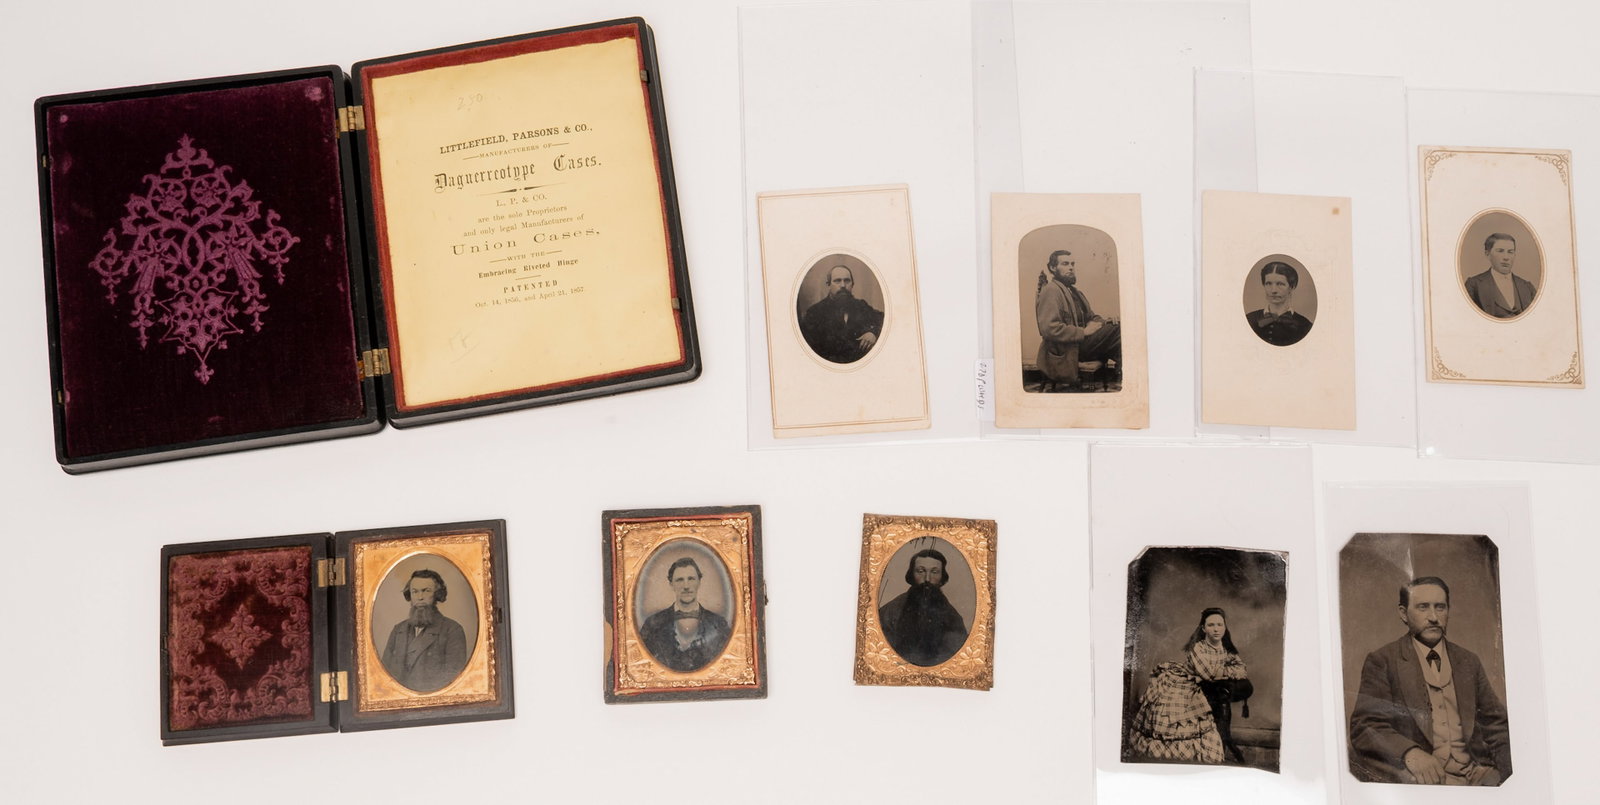 230
LITTLEFIELD, PARSONS & CO.,
MANUFACTURERS OF
Daguerreotype Cases.
L. P. & CO.
are the sole Proprietors
and only legal Manufacturers of
Union Cases,
WITH THE
Embracing Riveted Hinge
PATENTED
Oct. 14, 1856, and April 21, 1857.